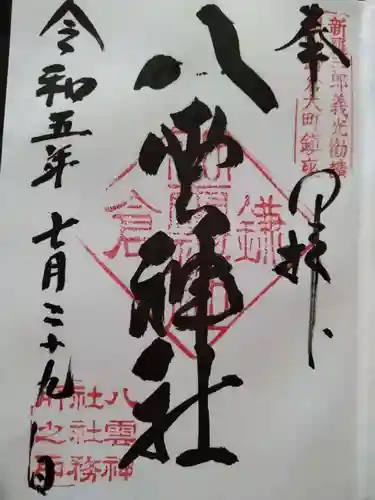 奉拝
新羅三郎義光勧請
鎌倉大町鎮座
八雲神社
鎌倉
令和五年七月二十九日
八雲神
社社務
所之印